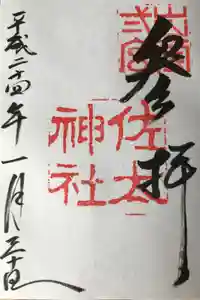 参拝
佐太
神社
平成二十四年一月三十日